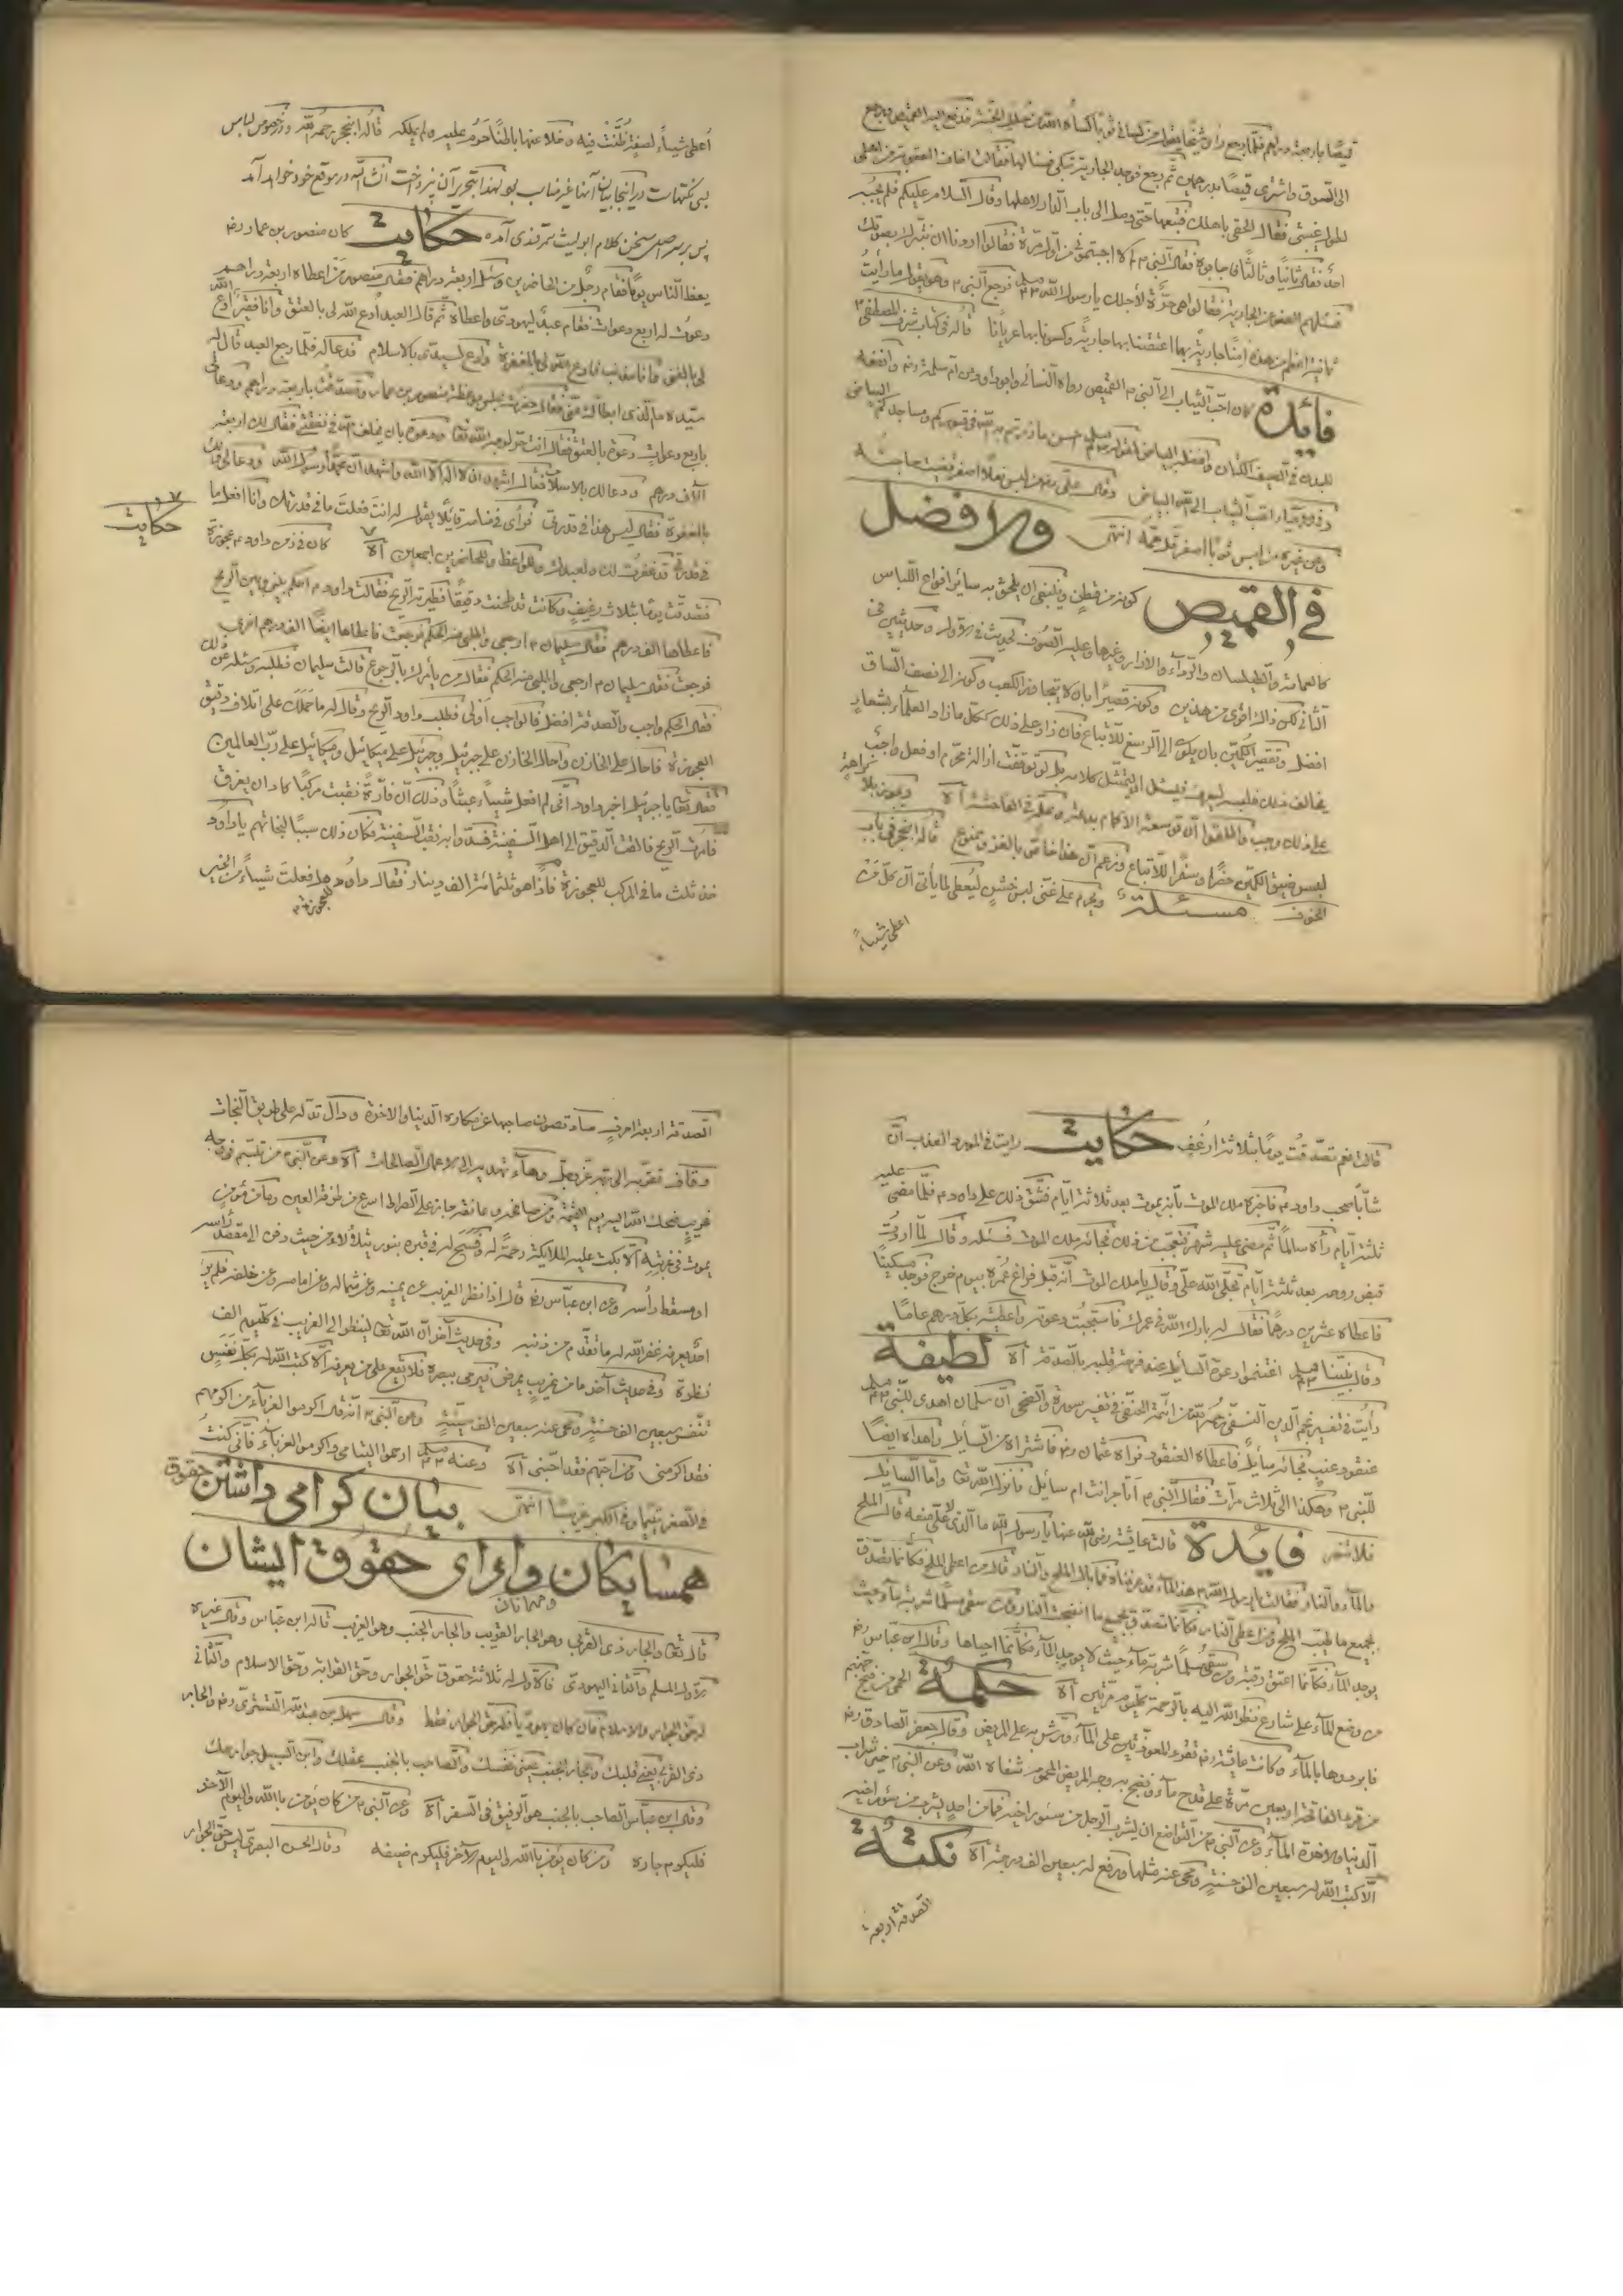 قميصًا باربعة دراهم فلمّا رجع رأى شيخًا يقول من كساني ثوبًا كساه الله من حلل الجنّة فدفع اليه القميص ورجع
الى السّوق واشترى قميصًا بدرهمين ثم رجع فوجد الجارية تبكي فسألها فقالت اخاف العقوبة من اهلي
لطول غيبتي فقال الحقي باهلك فتبعها حتى وصل الى باب الدّار لاهلها وقال السّلام عليكم فلم يجبه
احد فقال ثانيًا وثالثًا فاجابوه فقال النّبي ألا اجبتموني من اوّل مرّة فقالوا اردنا ان نتبرّك بصوتك
فسألهم العفو عن الجارية فقالوا هي حرّة لأجلك يا رسول الله فرجع النّبي وهو يقول ما رأيت
ثمانية اعظم من هذه امنّا جارية بها اعتقنا بها جارية وكسونا بها عريانًا قاله في كتاب شرف المصطفى
فائدة كان احبّ الثّياب الى النّبي القميص رواه النّسائي وابو داود عن امّ سلمة
للبدن في الصيف الكتّان وافضله البياض لقوله احسن ما زرتم به الله في قبوركم ومساجدكم البياض
احبّ الثياب الى الله البياض وقال علي من لبس نعلًا اصفر قضيت حاجته
وعن غيره من لبس ثوبًا اصفر قلّ همّه انتهى والافضل
في القميص كونه من قطن وينبغي ان يلحق به سائر انواع اللّباس
كالعمامة والطيلسان والرّداء والازار وغيرها وعليه الصّوف لحديث في الاول وحديثين في
الثّاني لكن ذاك اقوى من هذين وكونه قصيرًا بان لا يتجاوز الكعب وكونه الى نصف السّاق
افضل وتقصير الكمّين بان يكون الى الرسغ للاتّباع فان زاد على ذلك ككلّ ما زاد العلماء بشعار
يخالف ذلك فلبسه ليعرف فيسئل ليمتثل كلامه بل لو توقّفت ازالة محرّم او فعل واجب
على ذلك وجب واطلقوا انّ توسعة الاكمام بدعة
لبس ضيق الكمّين حضرًا وسفرًا للاتّباع وزعم انّ هذا خاصّ بالغزو ممنوع قاله ابن حجر في باب
الخوف مسئلة ويحرم على غنيّ لبس خشن ليُعطى لما يأتي انّ كلّ من
اعطى شيئًا
اُعطي شيئًا لصفة ظُنّت فيه وخلا عنها باطنًا حرم عليه ولم يملكه قاله ابن حجر رحمه الله ودر خصوص لباس
بس نكتهاست در اينجا بيان آنها غير مناسب بود لهذا بتحرير آن نپرداخت انشاءالله در موقع خود خواهد آمد
پس برسر اصل سخن كلام ابو ليث سمرقندى آمده حكايت كان منصور بن عمار
يعظ النّاس يومًا فقام رجل من الحاضرين وسئل اربعة دراهم فقال منصور من اعطاه اربعة دراهم
دعوت له اربع دعوات فقام عبد ليهودي واعطاه ثم قال العبد اُدع الله لي بالعتق وانا فقير ادع الله
لي بالغنى وانا مذنب فادع الله لي بالمغفرة وادع لسيّدي بالاسلام فدعا له فلمّا رجع العبد قال له
سيّده ما الّذي ابطأك عنّي فقال حضرت مجلس موعظة منصور بن عمار وتصدّقت باربعة دراهم ودعا لي
باربع دعوات دعوة بالعتق فقال انت حرّ لوجه الله ودعوة بان يخلف الله في نفقتي فقال لك اربعة
آلاف درهم ودعا لك بالاسلام فقال اشهد ان لا اله الا الله واشهد انّ محمدًا رسول الله ودعا لي ولك
بالمغفرة فقال ليس هذا في قدرتي فرأى في منامه قائلًا يقول له انت فعلت ما في قدرتك وانا افعل ما
في قدرتي قد غفرت لك ولعبدك وللواعظ وللحاضرين اجمعين آه كان في زمن داود عجوزة
حكايت
تصدّقت يومًا بثلاث رغيف وكانت قد طحنت دقيقًا فطيّرته الريح فقالت داود احكم بيني وبين الريح
فاعطاها الف درهم فقال سليمان ارجعي واطلبي منه الحكم فرجعت فاعطاها ايضًا الف درهم اخرى
فرجعت فقال سليمان ارجعي واطلبي منه الحكم فقال من يأمرك بالرجوع قالت سليمان فطلبه وسئله عن ذلك
فقال الحكم واجب والصدقة افضل فالواجب اولى فطلب داود الريح وقال له ما حملك على اتلاف دقيق
العجوزة فاحال على الخازن واحال الخازن على جبرئيل وجبرئيل على ميكائيل وميكائيل على ربّ العالمين
فقال تعالى يا جبرئيل اخبر داود انّي لم افعل شيئًا عبثًا وذلك انّ فأرة نقبت مركبًا كاد ان يغرق
فامرت الريح فالقت الدّقيق الى اهل السّفينة فسدّوا به نقب السّفينة فكان ذلك سببًا لنجاتهم يا داود
خذ ثلث ما في المركب للعجوزة فاذا هو ثلثمائة الف دينار فقال داود هل فعلت شيئًا من الخير
قالت نعم تصدّقت يومًا بثلاثة ارغف حكايت رايت في المورد العذب انّ
شابًّا صحب داود فاخبره ملك الموت بأنّه يموت بعد ثلاثة ايّام فشقّ ذلك على داود فلمّا مضى عليه
ثلثة ايّام رآه سالمًا ثمّ مضى عليه شهر فتعجّب من ذلك فجائه ملك الموت فسئله وقال لمّا اردت
قبض روحه بعد ثلثة ايّام تجلّى الله عليّ وقال يا ملك الموت انّه قبل فراغ عمره بيوم خرج فوجد مسكينًا
فاعطاه عشرين درهمًا فقال له بارك الله في عمرك فاستجبت دعوته واعطيته بكلّ درهم عامًا
وقال نبيّنا اغتنموا دعوة السّائل عند فرحة قلبه بالصّدقة آه لطيفة
رأيت في تفسير نجم الدّين النّسفي من ائمّة الحنفي في تفسير سورة والضحى انّ سلمان اهدى للنّبي
عنقود عنب فجائه سائل فاعطاه العنقود فرآه عثمان فاشتراه من السّائل واهداه ايضًا
للنّبي وهكذا الى ثلاث مرّات فقال النّبي أتاجر انت ام سائل فانزل الله تعالى وامّا السّائل
فلا تنهر فايدة قالت عايشة رضي الله عنها يا رسول الله ما الّذي لا يحلّ منعه قال الملح
والماء والنار فقالت يا رسول الله هذا الماء قد عرفناه فما بال الملح والنار قال من اعطى الملح فكأنّما تصدّق
بجميع ما طيّب الملح ومن اعطى النار فكأنّما تصدّق بجميع ما انضجت النار ومن سقى مسلمًا شربة ماء حيث
يوجد الماء فكأنّما اعتق رقبة ومن سقى مسلمًا شربة ماء حيث لا يوجد الماء فكأنّما احياها وقال ابن عبّاس
من وضع الماء على شارع نظر الله اليه بالرحمة آه حكمة الحمى من فيح جهنّم
فابردوها بالماء وكانت عايشة تقرء المعوّذتين على الماء وترشّ به على المريض وقال جعفر الصادق
من قرء الفاتحة اربعين مرّة على قدح ماء ونضح به وجه المريض المحموم شفاه الله وعن النّبي خير شراب
الدّنيا والاخرة الماء وعن النّبي من التّواضع ان يشرب الرجل من سئور اخيه فما من احد يشرب من سئور اخيه
الّا كتب الله له سبعين الف حسنة ومحى عنه مثلها ورفع له سبعين الف درجة آه نكتة
الصّدقة اربعة
الصّدقة اربعة احرف صاد تصون صاحبها عن مكاره الدّنيا والاخرة ودال تدلّه على طريق النّجاة
وقاف تقرّبه الى ربّه عزّ وجلّ وهاء تهديه الى الاعمال الصالحات آه وعن النّبي من تبسّم في وجه
غريب ضحك الله اليه يوم القيمة ومن صافحه وعانقه جاز على الصّراط اسرع من طرفة العين وما من مؤمن
يموت في غربته الّا بكت عليه الملائكة رحمةً له وفُسح له في قبره بنور يتلألأ من حيث دفن الى مسقط رأسه
وعن ابن عبّاس قال اذا نظر الغريب عن يمينه وعن شماله وعن امامه وعن خلفه فلم ير
احدًا يعرفه غفر الله له ما تقدّم من ذنبه وفي حديث آخر انّ الله تعالى لينظر الى الغريب في كلّ يوم الف
نظرة وفي حديث آخر ما من غريب يمرض فيرمي ببصره فلا يقع على من يعرفه الّا كتب الله له بكلّ نفس
تنفّس سبعين الف حسنة ومحى عنه سبعين الف سيّئة وعن النّبي انّه قال اكرموا الغرباء من اكرمهم
فقد اكرمني ومن احبّهم فقد احبّني آه وعنه ارحموا اليتامى واكرموا الغرباء فانّي كنت
في الصّغر يتيمًا وفي الكبر غريبًا انتهى بيان گرامى داشتن حقوق
همسايگان واداى حقوق ايشان
ومهمانان
قال تعالى والجار ذي القربى وهو الجار القريب والجار الجنب وهو الغريب قاله ابن عباس وقال غيره
الاول المسلم والثّاني اليهودي فالاول له ثلاثة حقوق حقّ الجوار وحقّ القرابة وحقّ الاسلام والثّاني
له حقّ الجوار والاسلام فان كان يهوديًّا فله حقّ الجوار فقط وقال سهل بن عبد الله التستري والجار
ذي القربى يعني قلبك والجار الجنب يعني نفسك والصّاحب بالجنب عقلك وابن السبيل جوارحك
وقال ابن عبّاس الصّاحب بالجنب هو الرفيق في السفر آه وعن النّبي من كان يؤمن بالله واليوم الآخر
فليكرم جاره ومن كان يؤمن بالله واليوم الآخر فليكرم ضيفه وقال الحسن البصري ليس حقّ الجوار